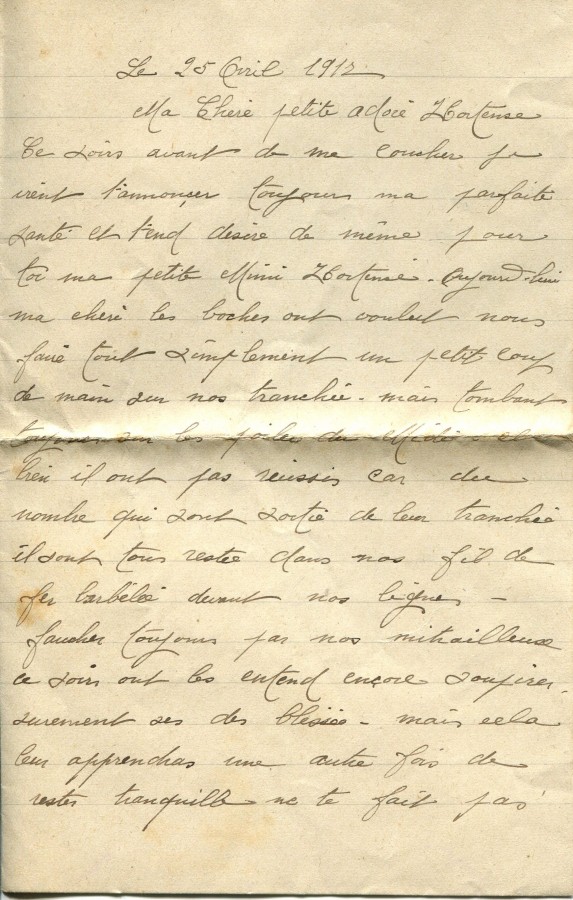 Le 25 Avril 1917
Ma Chère petite adoré Hortense
Ce soirs avant de me coucher je
vient t'annonçer toujours ma parfaite
santé et t'end désire de même pour
toi ma petite Mimi Hortense. Aujourd-hui
ma chéri les boches ont voulut nous
faire tout simplement un petit coup
de main sur nos tranchée - mais tombant
toujours sur les poilus du Midi - et
bien il ont pas reussis car du
nombre qui sont sortie de leur tranchée
il sont tous restée dans nos fil de
fer barbélée devant nos lignes -
faucher toujours par nos mitrailleuse
ce soirs ont les entend encore soupirer.
surement ses des blessés - mais cela
leur apprendras une autre fois de
rester tranquille ne te fait pas